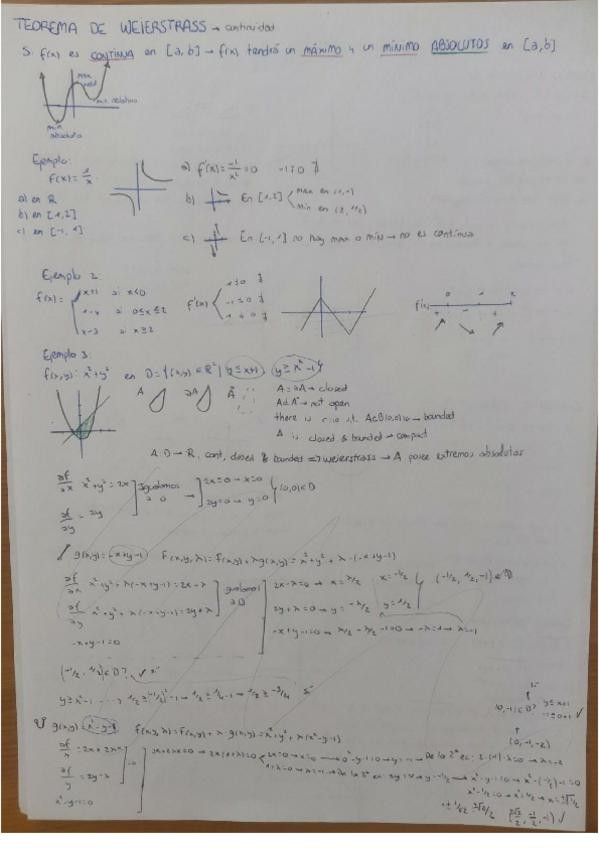 TEOREMA DE WEIERSTRASS → continuidad
Si f(x) es CONTINUA en [a,b] → f(x) tendrá un máximo y un mínimo ABSOLUTOS en [a,b]
max relat
min relativo
min absoluto
Ejemplo:
f(x) = 1/x
a) en R
b) en [1,2]
c) en [-1,1]
a) f'(x) = -1/x² = 0   -1 = 0 ∄
b) En [1,2] max en (1,1)
min en (2, 1/2)
c) En [-1,1] no hay max o min → no es continua
Ejemplo 2:
f(x) = x+1 si x<0
1-x si 0≤x≤2
x-3 si x≥2
f'(x) 1≠0 ∄
-1≠0 ∄
1≠0 ∄
f'(x) 0 2
+ - +
Ejemplo 3:
f(x,y): x²+y² en D={(x,y)∈R² | y≤x+1, y≥x²-1}
A ∂A Å
A=∂A → closed
A≠Å → not open
there is r>0 s.t. A⊂B(0,0),r → bounded
A is closed & bounded → compact
A:D→R, cont, closed & bounded ⇒ weierstrass → A posee extremos absolutos
∂f/∂x x²+y² = 2x
∂f/∂y = 2y
Igualamos a 0 → 2x=0 → x=0
2y=0 → y=0
(0,0)∈D
g(x,y)=-x+y-1   F(x,y,λ)=f(x,y)+λg(x,y)=x²+y²+λ·(-x+y-1)
∂f/∂x x²+y²+λ(-x+y-1)=2x-λ
∂f/∂y x²+y²+λ(-x+y-1)=2y+λ
-x+y-1=0
igualamos a 0
2x-λ=0 → x=λ/2   x=-1/2
2y+λ=0 → y=-λ/2   y=1/2
(-1/2, 1/2, -1)
-x+y-1=0 → -λ/2-λ/2-1=0 → -λ=1 → λ=-1
(-1/2, 1/2)∈D? ✓
y≥x²-1 → 1/2≥(-1/2)²-1 → 1/2≥1/4-1 → 1/2≥-3/4 si
g(x,y)=x²-y-1   f(x,y,λ)=f(x,y)+λ·g(x,y)=x²+y²+λ(x²-y-1)
∂f/x = 2x+2xλ
∂f/y = 2y-λ
x²-y-1=0
=0
2x+2xλ=0 → 2x(1+λ)=0 2x=0 → x=0 → 0²-y-1=0 → y=-1 → De la 2ª ec: 2·(-1)-λ=0 → λ=-2
1+λ=0 → λ=-1 → De la 2ª ec 2y+1=0 → y=-1/2 → x²-y-1=0 → x²-(-1/2)-1=0
x²-1/2=0 → x²=1/2 → x=±√1/2
±1/√2 = ±√2/2   (√2/2, -1/2, -1) ✓
(0,-1)∈D? y≤x+1
-1≤0+1 ✓
(0,-1,-2)